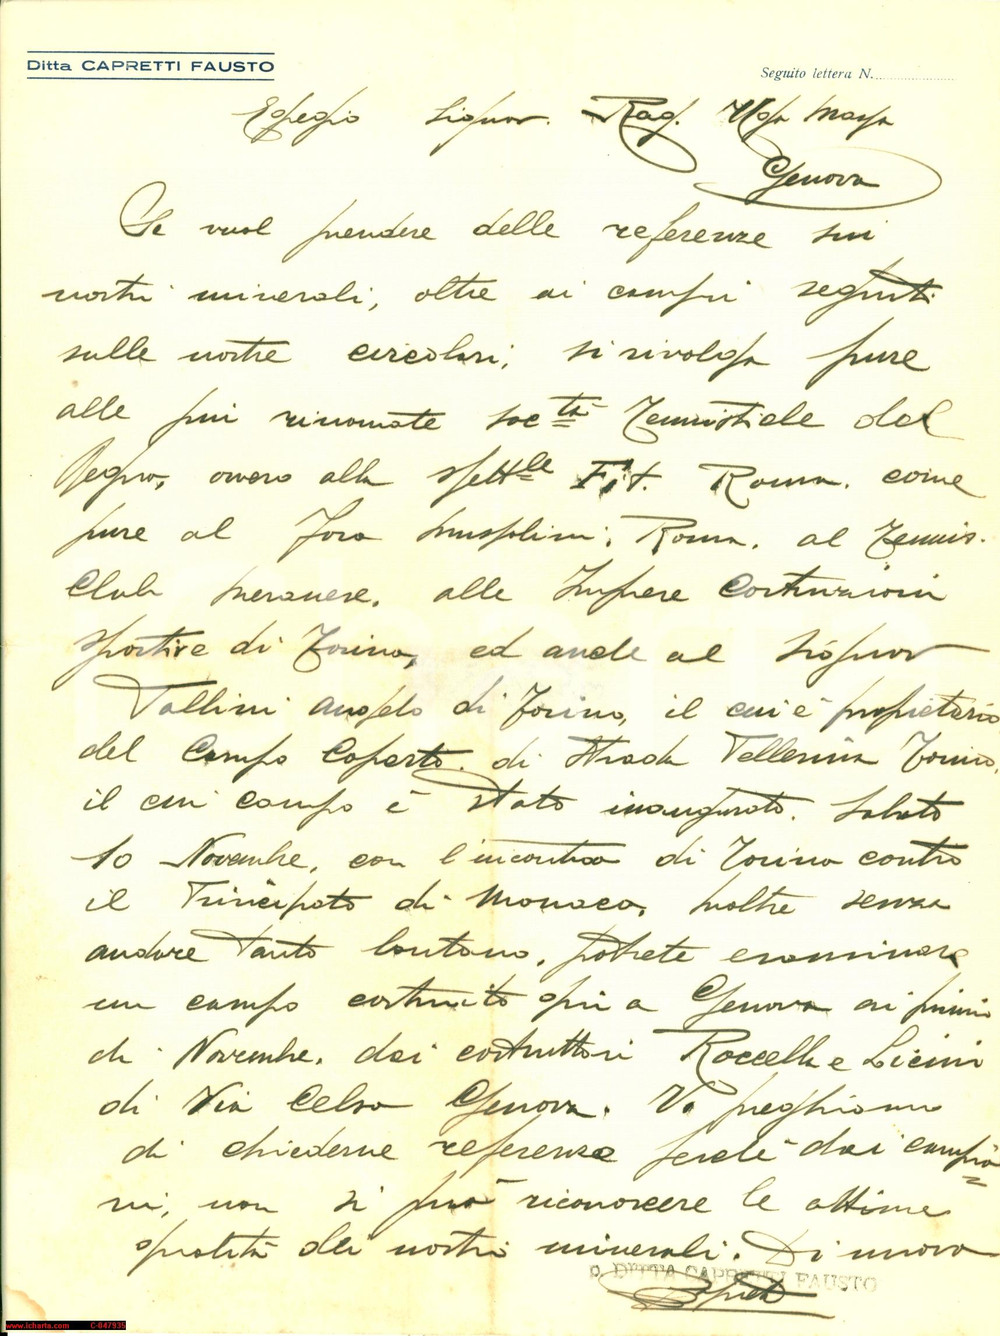 Ditta CAPRETTI FAUSTO
Seguito lettera N.
Egregio Signor. Rag. Ugo Massa
Genova
Se vuol prendere delle referenze sui
nostri minerali, oltre ai campi seguiti
sulle nostre circolari, si rivolga pure
alle piu rinomate soc.tà Tennistiche del
Regno, ovvero alla spett.le F.i.t. Roma. come
pure al Foro Mussolini, Roma. al Tennis.
Club Meranese. alle Imprese Costruzioni
sportive di Torino, ed anche al Signor
Tallini Angelo di Torino, il cui è proprietario
del Campo Coperto. di Strada Torino,
il cui campo è stato inaugurato. Sabato
10 Novembre, con l'incontro di Torino contro
il Principato di Monaco, inoltre senza
andare tanto lontano, potrete esaminare
un campo costruito qui a Genova ai primi
di Novembre. dai costruttori Roccella e Licini
di Via Celsa Genova. Vi preghiamo
di chiederne referenze perchè dai campio
ni, non si può riconoscere le ottime
qualità dei nostri minerali. Di nuovo
p. DITTA CAPRETTI FAUSTO
www.icharta.com C-647935